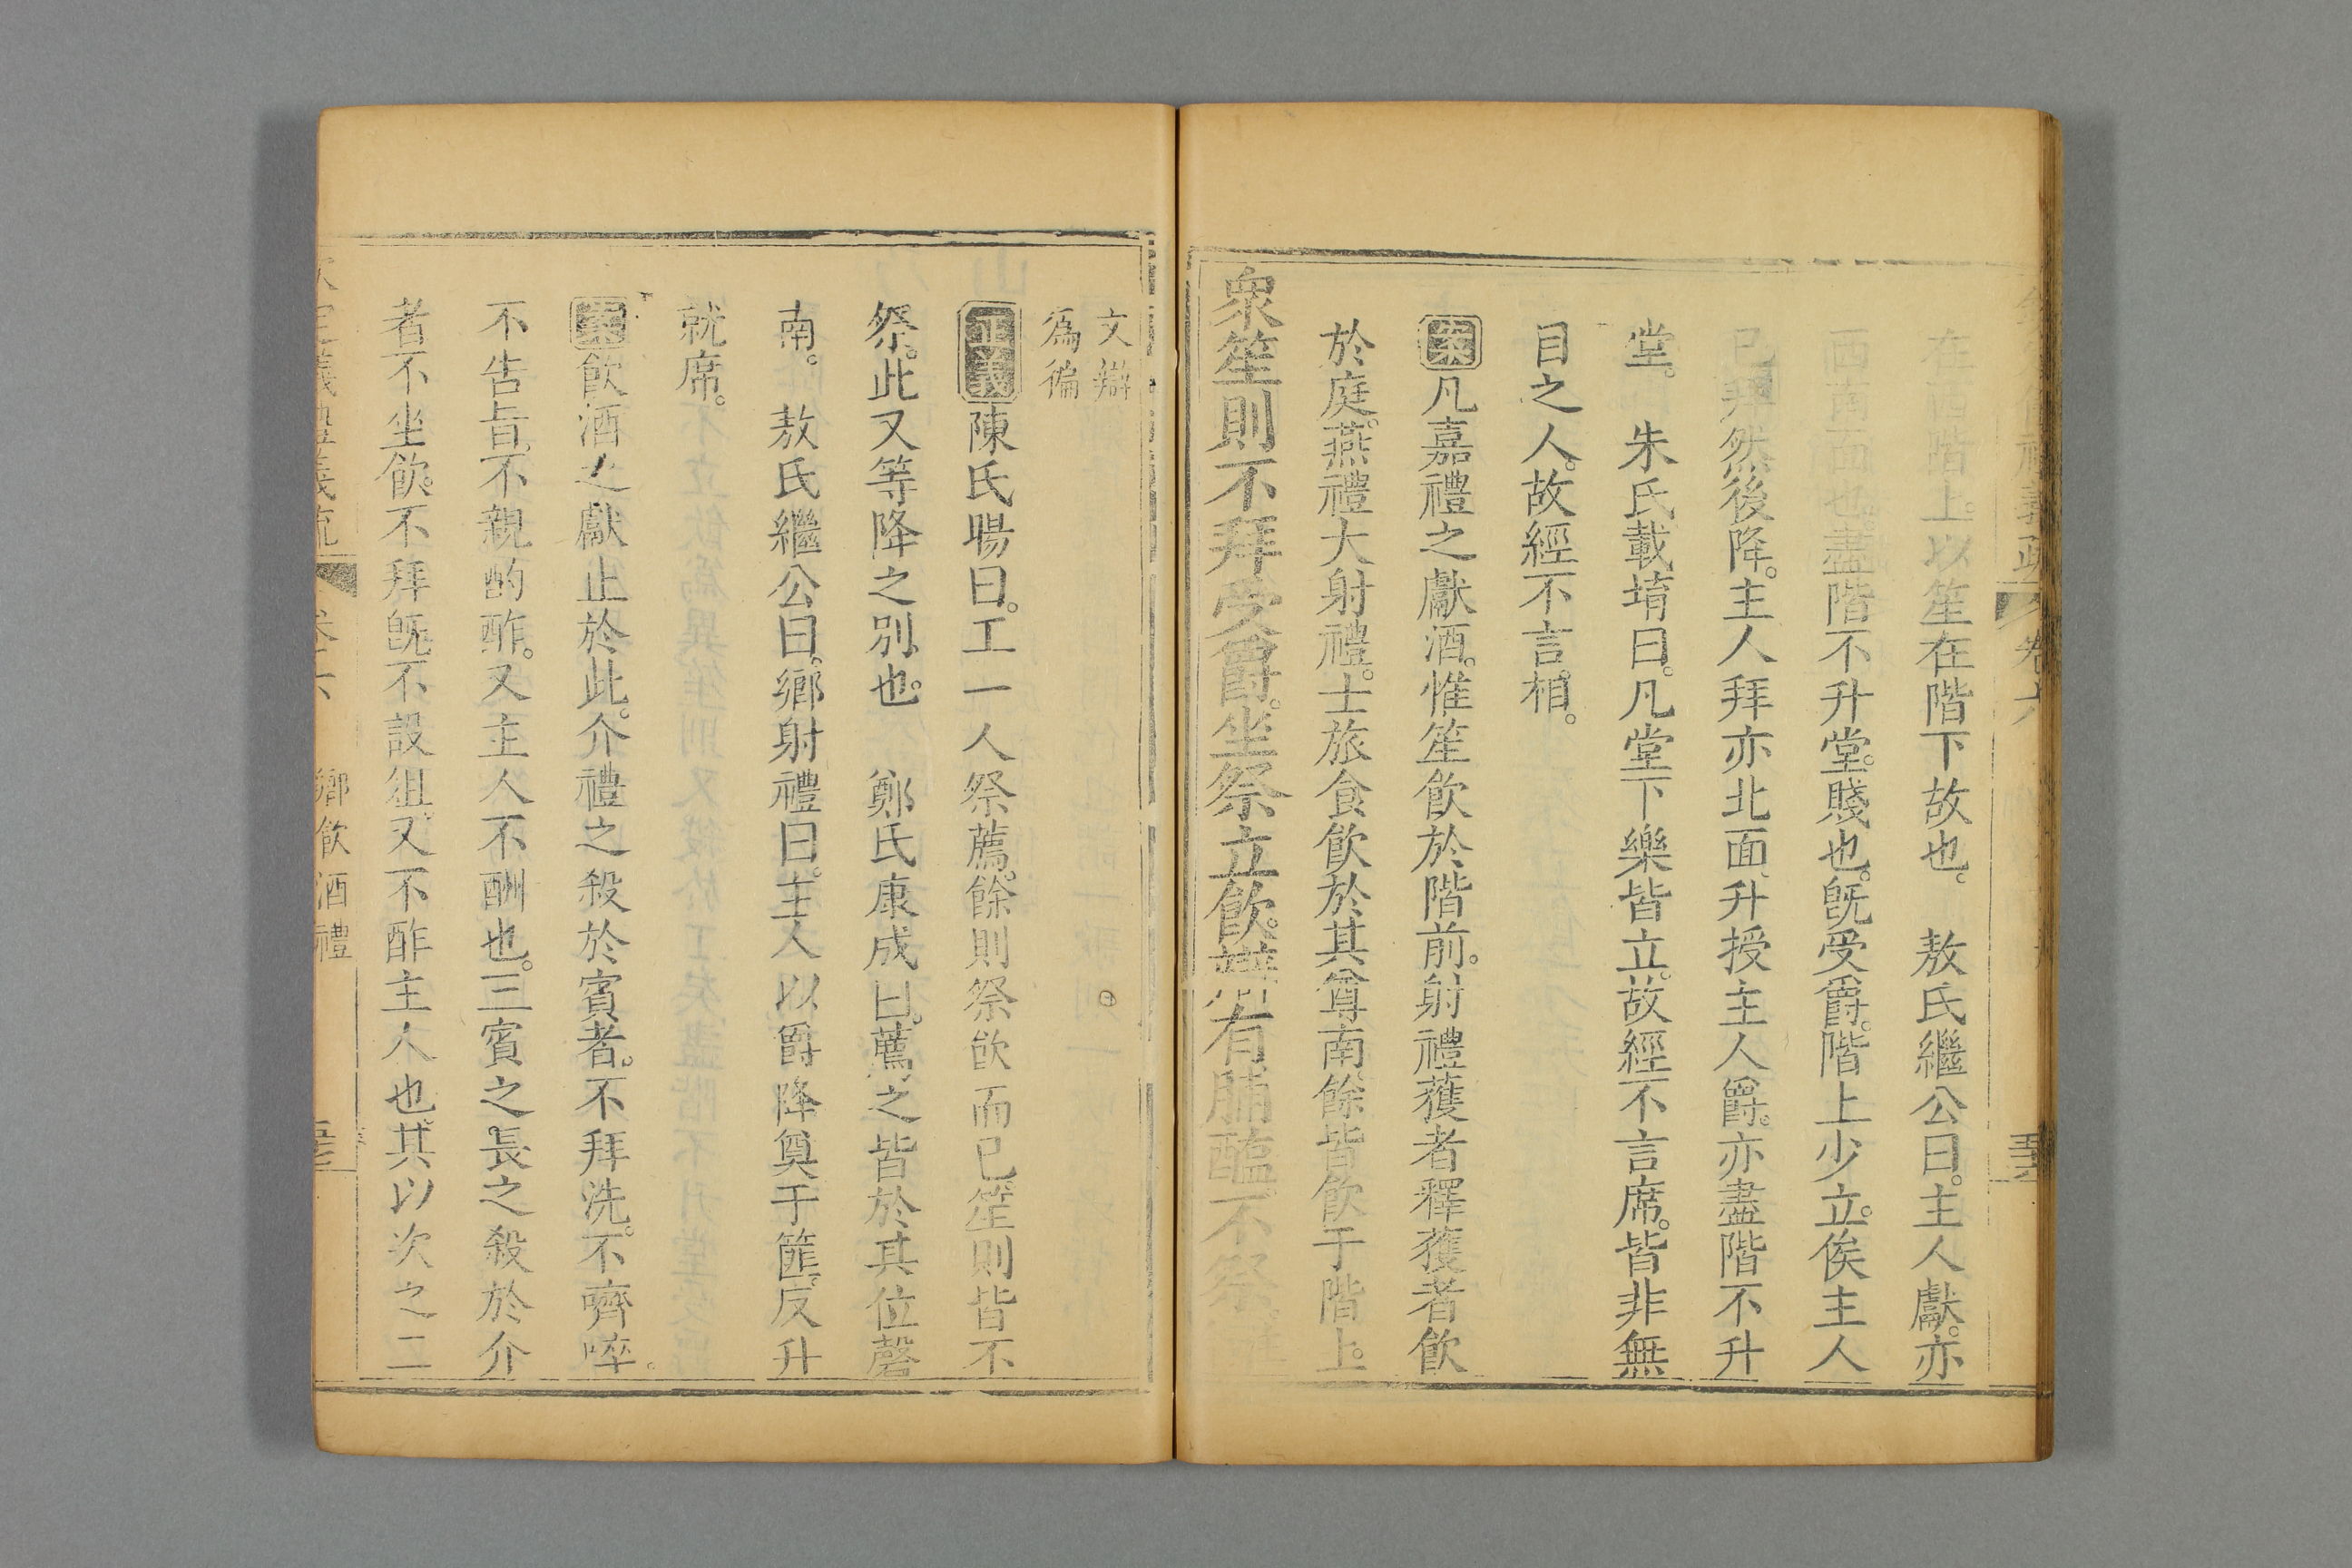 禮義疏 卷六
在 階上以笙在階下故也。 敖氏繼公曰。主人獻。亦
西南面也。盡階不升堂。賤也。既受爵。階上少立。俟主人
已拜然後降。主人拜亦北面升授主人爵。亦盡階不升
堂。 朱氏載堉曰。凡堂下樂皆立。故經不言席。皆非無
目之人。故經不言相。
案凡嘉禮之獻酒。惟笙飲於階前。射禮獲者釋獲者飲
於庭。燕禮大射禮。士旅食飲於其尊南。餘皆飲于階上。
眾笙則不拜受爵。坐祭立飲。辯有脯醢。不祭。
文辯
為徧
正義陳氏暘曰。工一人祭薦。餘則祭飲而已。笙則皆不
祭。此又等降之別也。 鄭氏康成曰。薦之皆於其位。磬
南。 敖氏繼公曰。鄉射禮曰。主人以爵降奠于篚。反升
就席。
案飲酒之獻止於此。介禮之殺於賓者。不拜洗。不嚌啐。
不告旨。不親酌酢。又主人不酬也。三賓之長之殺於介
者不坐飲。不拜既。不設俎。又不酢主人也。其以次之二
欽定儀禮義疏 卷六 鄉飲酒禮